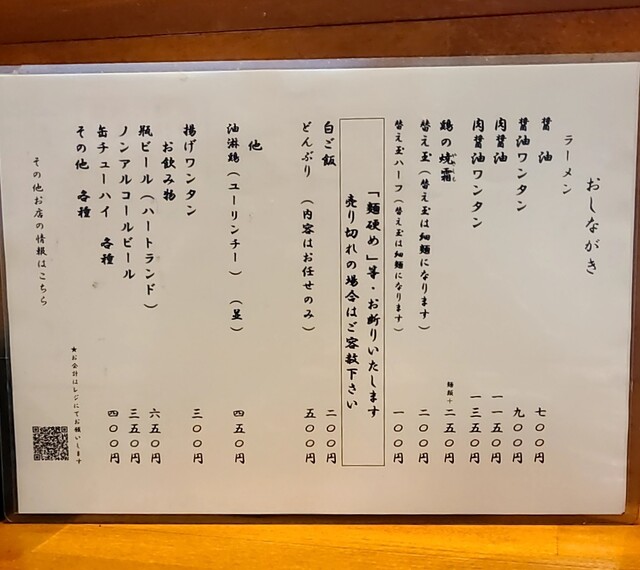 おしながき
ラーメン
醤油 七〇〇円
醤油ワンタン 九〇〇円
肉醤油 一一五〇円
肉醤油ワンタン 一三五〇円
鶏の焼霜 麺類+二五〇円
替え玉(替え玉は細麺になります) 二〇〇円
替え玉ハーフ(替え玉は細麺になります) 一〇〇円
「麺硬め」等・お断りいたします
売り切れの場合はご容赦下さい
白ご飯 二〇〇円
どんぶり (内容はお任せのみ) 五〇〇円
他
油淋鶏(ユーリンチー) 四五〇円
揚げワンタン 三〇〇円
お飲み物
瓶ビール(ハートランド) 六五〇円
ノンアルコールビール 三五〇円
缶チューハイ 各種 四〇〇円
その他 各種
★お会計はレジにてお願いします
その他お店の情報はこちら